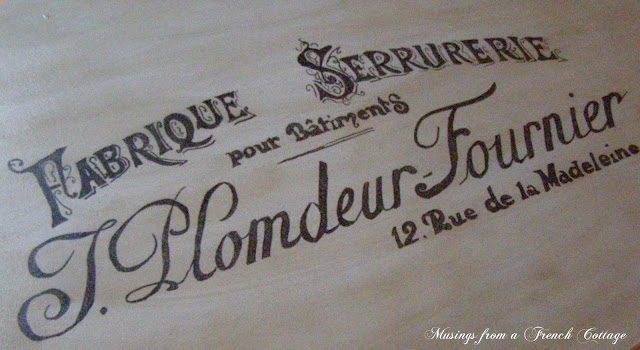 Fabrique Serrurerie
pour Bâtiments
J. Plomdeur-Fournier
12. Rue de la Madeleine
Musings from a French Cottage